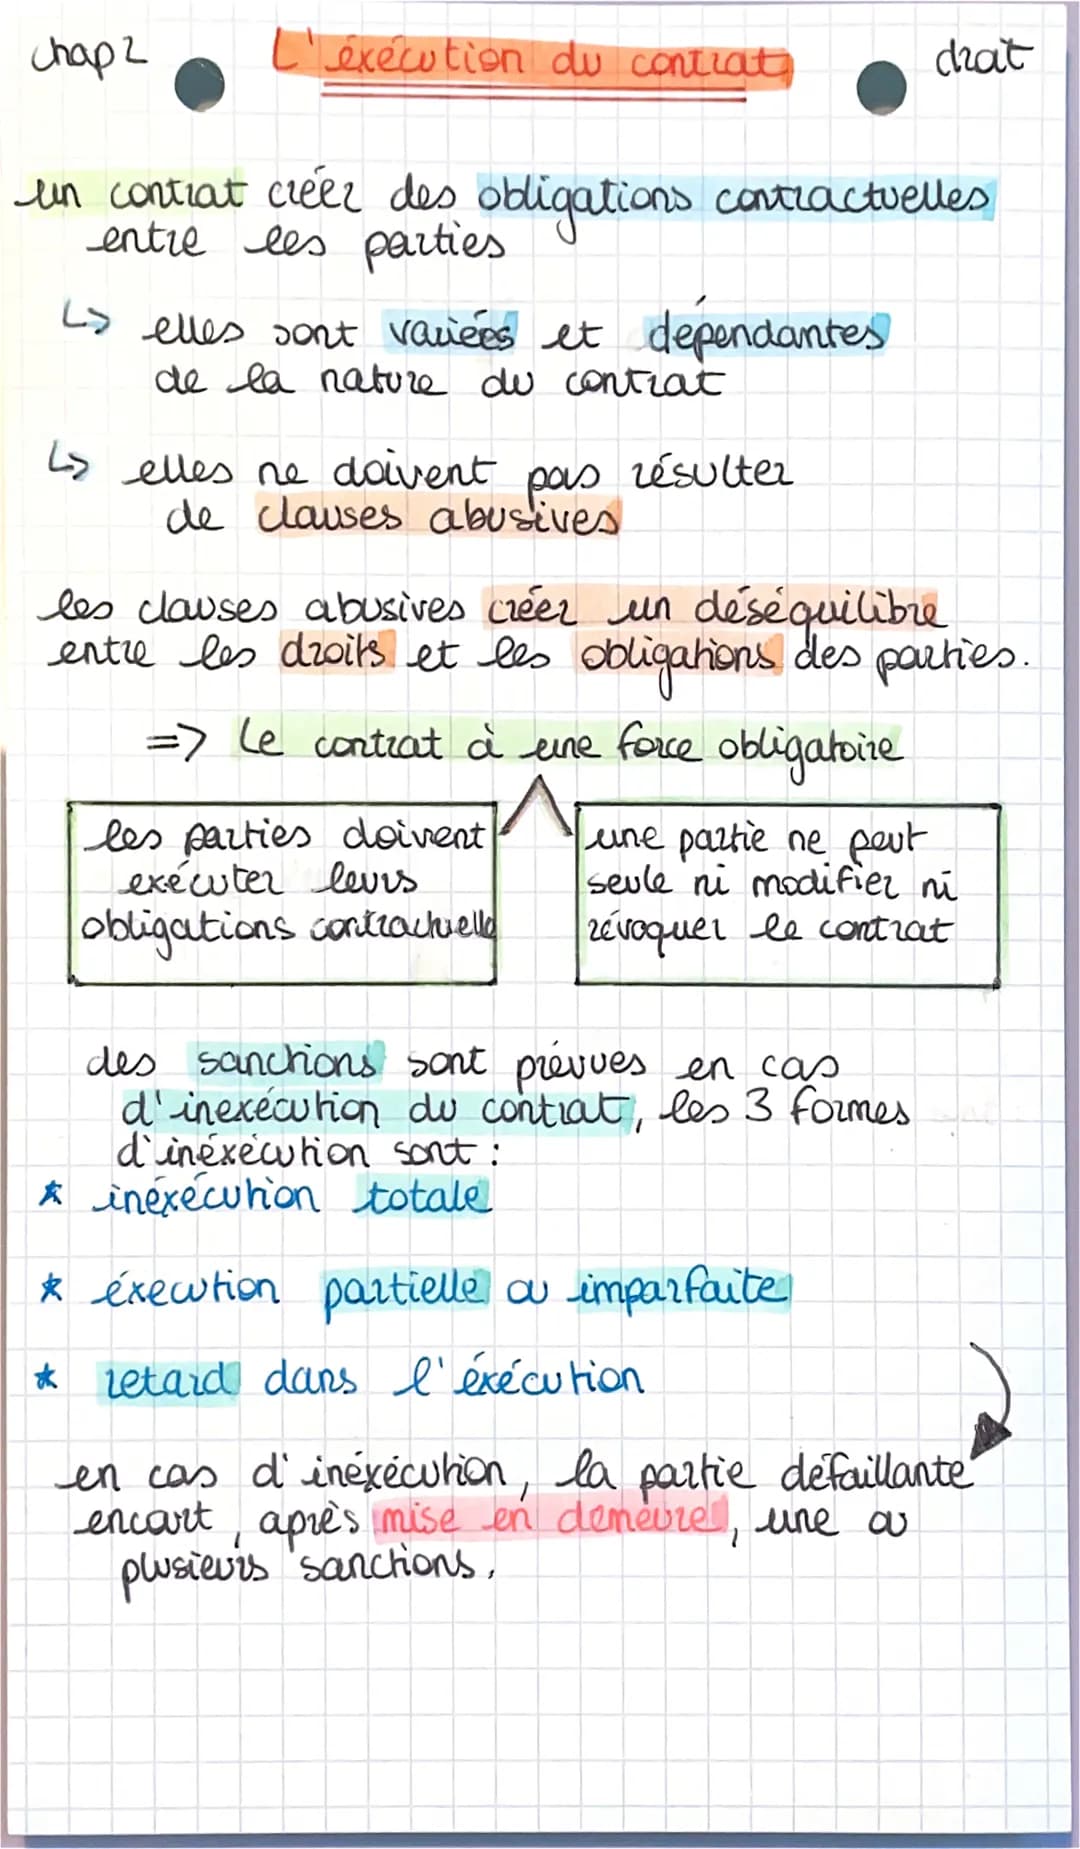 chap 2
L'éxécution du contrat
droit
un contrat créer des obligations contractuelles
entre les parties
↳ elles sont variées et dépendantes
de la nature du contrat
↳ elles ne doivent pas résulter
de clauses abusives
les clauses abusives créer un déséquilibre
entre les droits et les obligations des parties.
=> Le contrat à une force obligatoire
les parties doivent
exécuter leurs
obligations contractuelle
une partie ne peut
seule ni modifier ni
révoquer le contrat
des sanctions sont prévues en cas
d'inexécution du contrat, les 3 formes
d'inéxécution sont :
* inéxécution totale
* éxecution partielle ou imparfaite
* retard dans l'éxécution
en cas d'inéxécution, la partie défaillante
encourt, après mise en demeure, une ou
plusieurs sanctions.